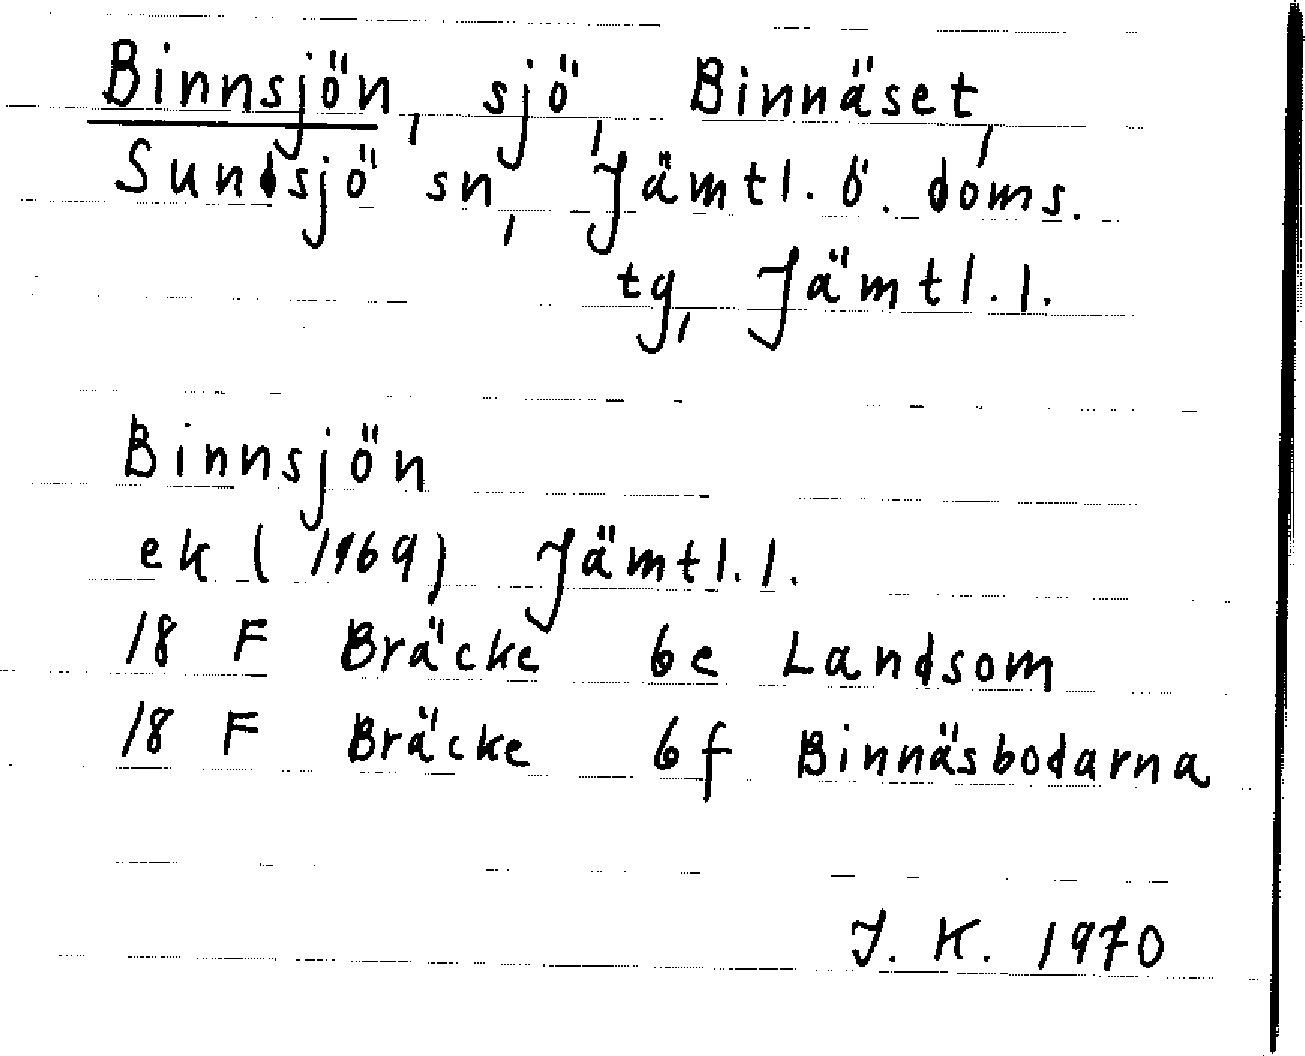 Binnsjön, sjö, Binnäset,
Sundsjö sn, Jämtl. ö. doms.
tg, Jämtl. l.
Binnsjön
ek (1969) Jämtl. l.
18 F Bräcke 6e Landsom
18 F Bräcke 6f Binnäsbodarna
J. K. 1970